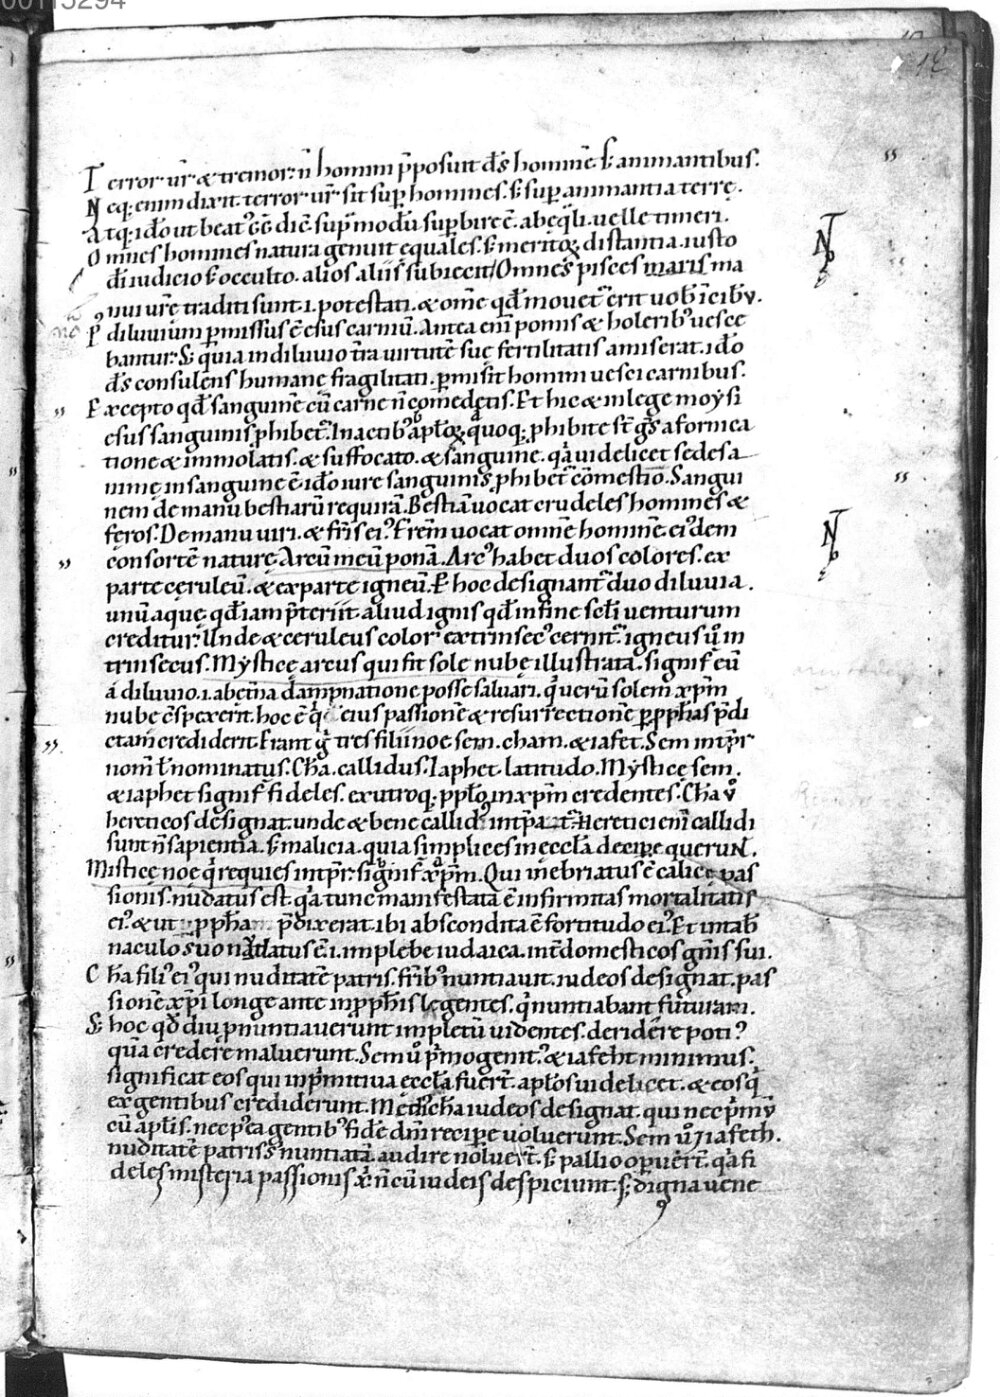 00115294
12
Terror ur̄ & tremor. n̄ homini p̄posuit d̄s homine᷒. s; animantibus.
Neq; enim dixit terror ur̄ sit sup̱ homines. s; sup̱ animantia terrę.
Atq; idō ut beat᷒ GG dic̄. sup̄ modū sup̱bire ē. ab eq̄li uelle timeri.
Omnes homines natura genuit equales. s; meritoꝝ distantia. iusto
dī iudicio s; occulto. alios aliis subiecit / Omnes pisces maris ma
nui ur̄e traditi sunt .i. potestati. & om̄e qd̄ mouet᷒ erit uob̄ ī cibū.
P᷒ diluuium p̱missus ē esus carniū. Antea enī pomis & holerib᷒ uesce
bantur. S; quia in diluuio t̄ra uirtutē suę fertilitatis amiserat. idō
d̄s consulens humanę fragilitati. p̱misit homini uesci carnibus.
Excepto qd̄ sanguinē cū carne n̄ comedetis. Et hic & in lege moysi
esus sanguinis ꝓhibet᷒. In actib᷒ ap̄loꝝ quoq; ꝓhibite st̄ gs̄ a fornica
tione & immolatis. & suffocato. & sanguine. q̄a uidelicet sedes a
nimę in sanguine ē. idō iure sanguinis ꝓhibet᷒ cōmestio. Sangui
nem de manu bestiarū requirā. Bestiā uocat crudeles homines &
feros. De manu uiri. & fr̄is ei᷒. Fr̄em uocat omnē hominē ei᷒dem
consortē naturę. Arcū meū ponā. Arc᷒ habet duos colores. ex
parte ceruleū. & ex parte igneū. P̱ hoc designant᷒ duo diluuia.
unū aquę qd̄ iam p̄teriit. aliud ignis qd̄ in fine sc̄li uenturum
creditur. Unde & ceruleus color extrinsec᷒ cernit᷒. igneus ū in
trinsecus. Mysticę arcus qui fit sole nube illustrata. signif̄ eū
a diluuio .i. ab et̄na dampnatione posse saluari. q̄ uerū solem xp̄m
nube cspexerit. hoc ē q̄ eius passionē & resurrectionē p̱ ꝓph̄as p̄di
ctam crediderit. Erant g̊ tres filii noe sem. cham. & iafet. Sem inṯpr̄
nom̄ l̄ nominatus. Chā. callidus. Iaphet latitudo. Mysticę sem.
& iaphet signif̄ fideles. ex utroq; pp̄lo in xp̄m credentes. Chā ū
hereticos designat. unde & bene callid᷒ inṯp̄tat᷒. Heretici enī callidi
sunt n̄ sapientia. s; malicia. quia simplices in eccl̄a decipe querunt.
Misticę noe q̄ requies inṯpr̄. signif̄ xp̄m. Qui inebriatus ē calice pas
sionis. nudatus est. q̄a tunc manifestata ē infirmitas mortalitatis
ei᷒. & ut ꝓpha p̄dixerat. ibi abscondita ē fortitudo ei᷒. Et in tab̄
naculo suo nudatus ē .i. in plebe iudaica. int̄ domesticos gn̄is sui.
Chā fili᷒ ei᷒ qui nuditatē patris fr̄ib᷒ nuntiauit. iudeos designat. pas
sionē xp̄i longe ante in ꝓph̄is legentes. q̄ nuntiabant futuram.
S; hoc qd̄ diu ꝓnuntiauerunt impletū uidentes. deridere poti᷒
quā credere maluerunt. Sem ū p̄mogenit᷒ & iafeht minimus.
significat eos qui in p̄mitiua eccl̄a fuer̄t. ap̄los uidelicet. & eos q̄
ex gentibus crediderunt. Medi᷒ chā iudeos designat. qui nec p̄mū
cū ap̄lis. nec p᷒ea gentib᷒ fidē dn̄i recipe uoluerunt. Sem ū ⁊ iafeth.
nuditatē patris s; nuntiatā audire noluer̄t. s; pallio opuer̄t. q̄a fi
deles misteria passionis x̄ n̄ cū iudeis despiciunt. s; digna uene